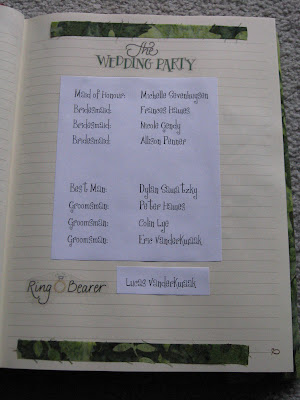 The
WEDDING PARTY
Maid of Honour: Michelle
Bridesmaid: Frances Hawes
Bridesmaid: Nicole Gendy
Bridesmaid: Allison Penner
Best Man: Dylan
Groomsman: Peter Hawes
Groomsman: Colin Lye
Groomsman: Eric VanderKwaak
Ring Bearer Lucas VanderKwaak